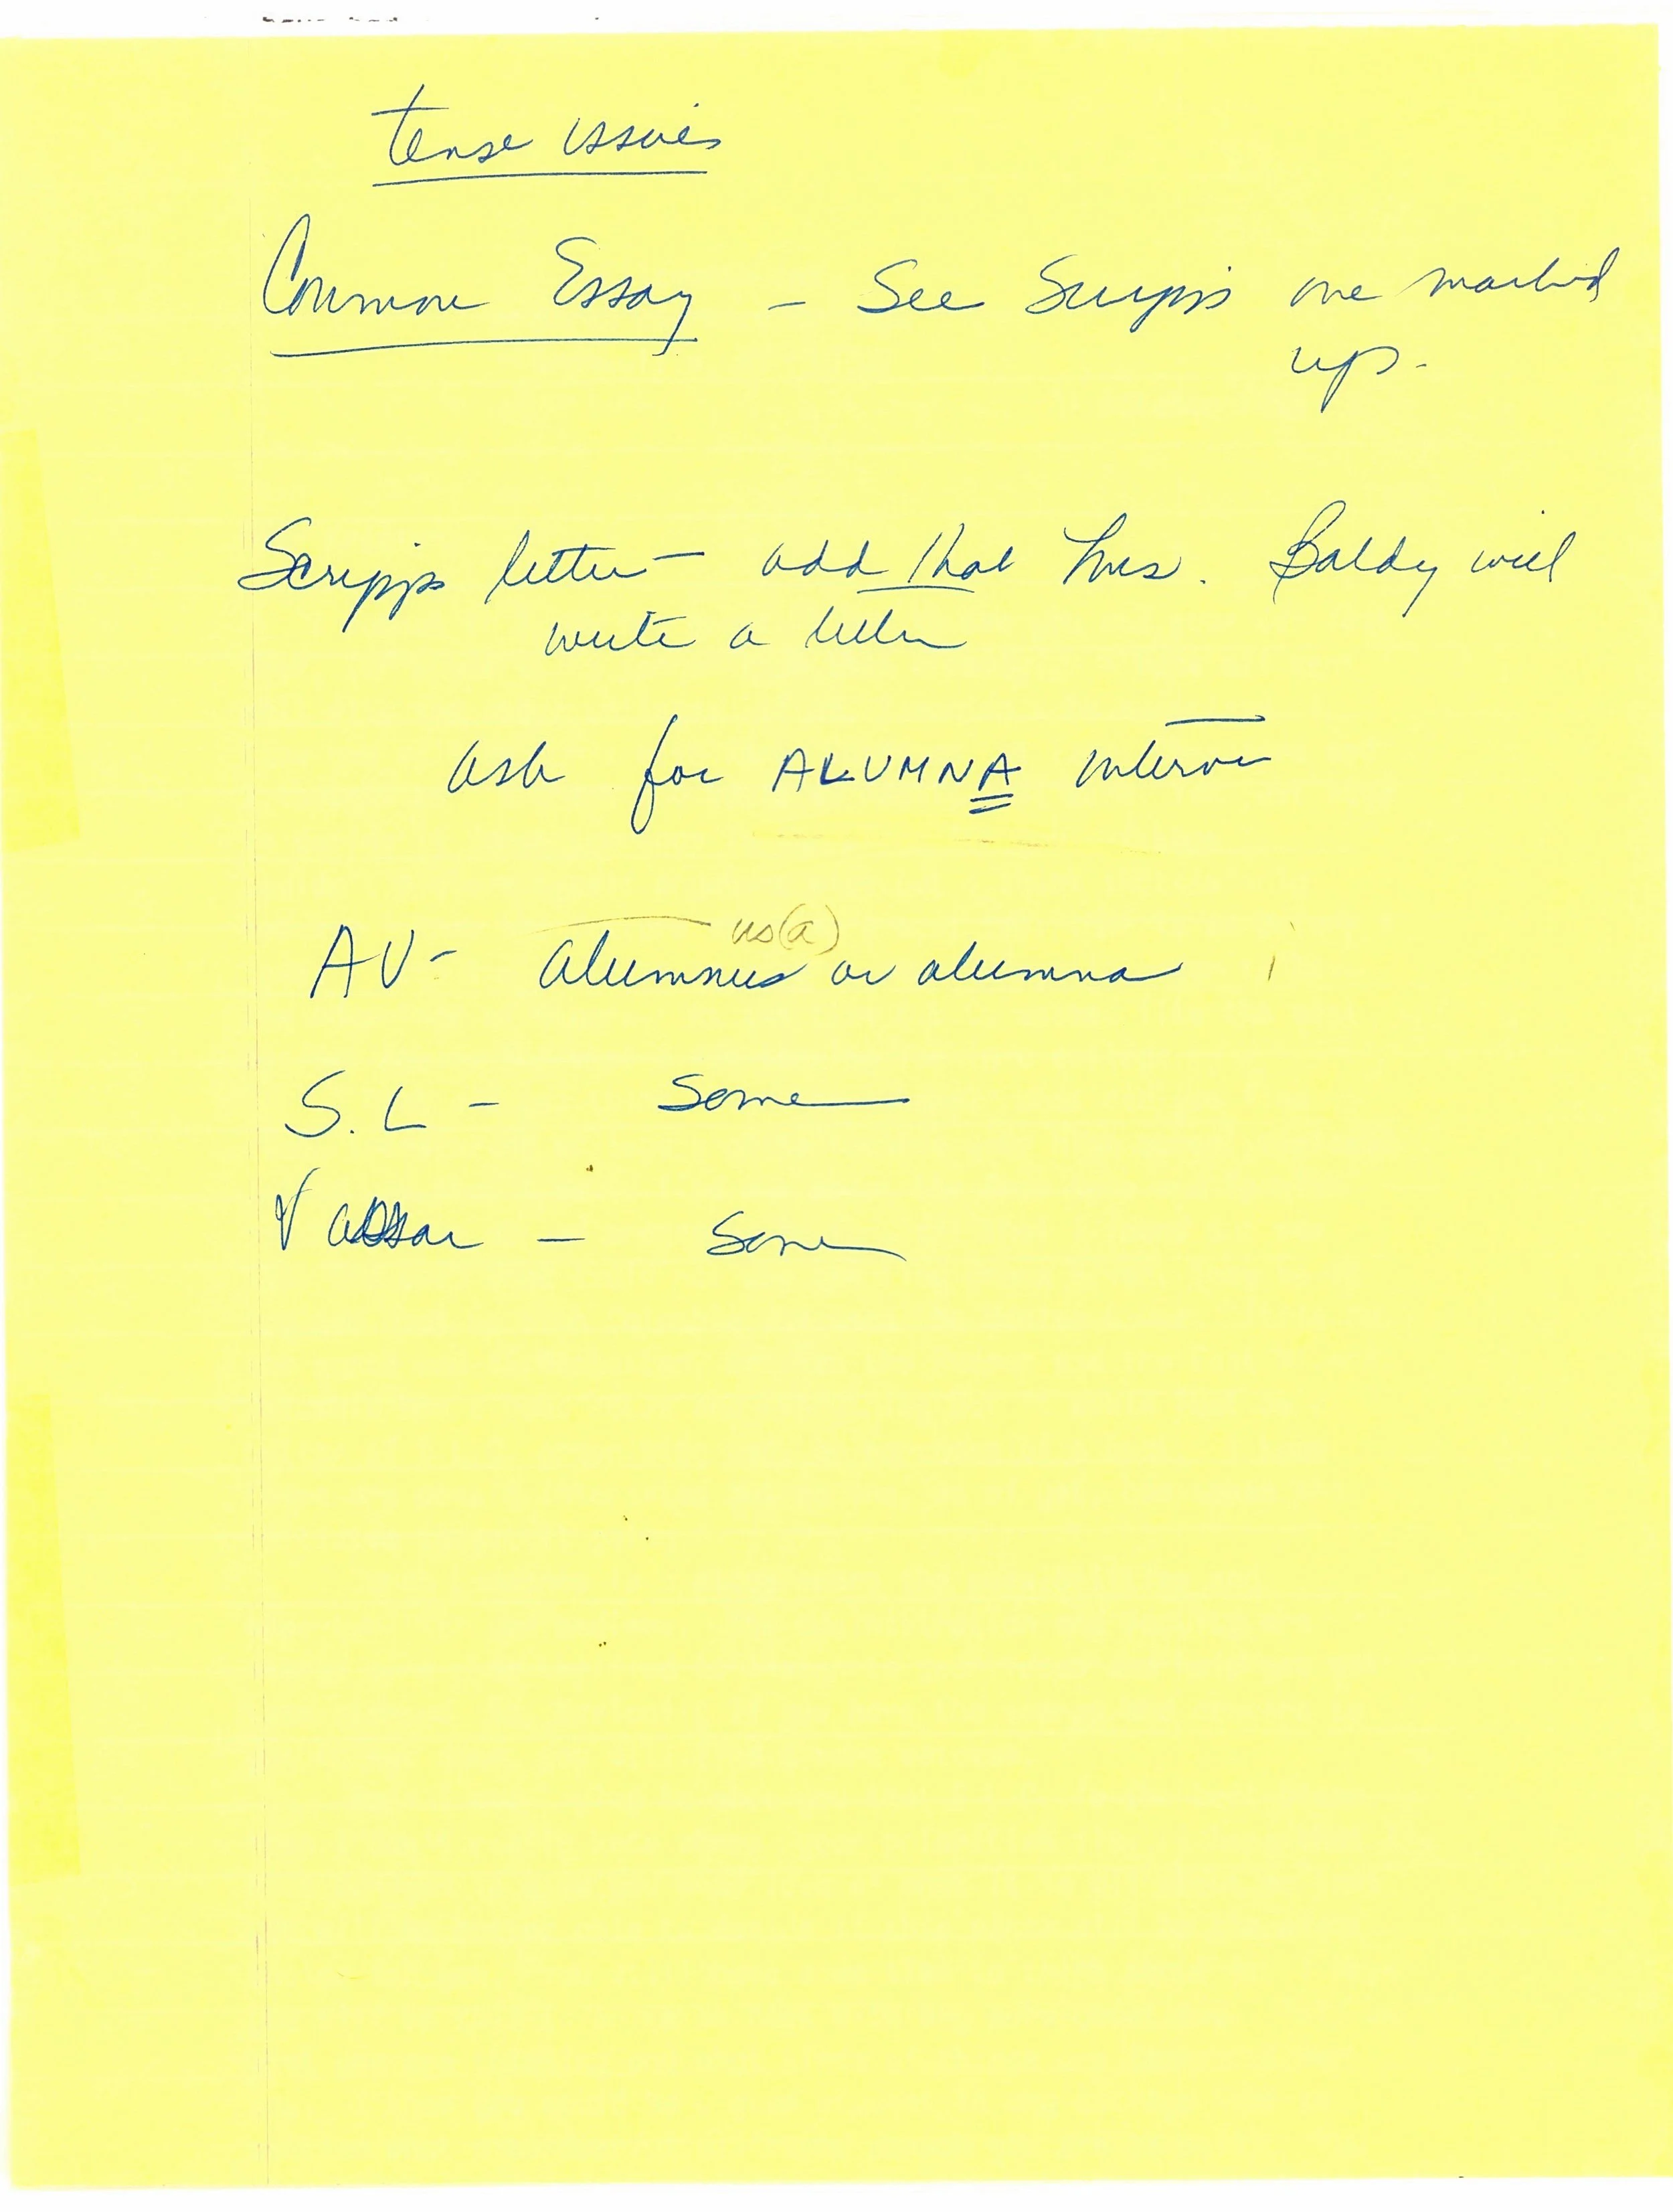 tense issues
Common Essay - See Scripps one marked
up.
Scripps letter - add that Mrs. Baldy will
write a letter
ask for ALUMNA interview
us(a)
AU- alumnus or alumna
S.L - Same
Vassar - Same